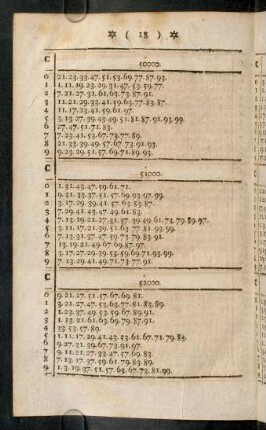 ✡ ( 18 ) ✡
C 50000.
0 21.23.33.47.51.53.69.77.87.93.
1 1.11.19.23.29.31.47.53.59.77.
2 7.21.27.31.61.63.73.87.91.
3 11.21.29.33.41.59.63.77.83.87.
4 11.17.23.41.59.61.97.
5 3.13.27.39.43.49.51.81.87.91.93.99.
6 27.47.51.71.83.
7 7.23.41.53.67.73.77.89.
8 21.33.39.49.57.67.73.91.93.
9 9.23.29.51.57.69.71.89.93.
C 51000.
0 1.31.43.47.59.61.71.
1 9.31.33.37.51.57.69.93.97.99.
2 3.17.29.39.41.57.63.83.87.
3 7.29.41.43.47.49.61.83.
4 7.13.19.21.27.31.37.39.49.61.73.79.87.
5 3.11.17.21.39.51.63.77.81.93.99.
6 7.13.31.37.47.59.73.79.83.91.
7 13.19.21.49.67.69.87.97.
8 3.17.27.29.39.53.59.69.71.93.99.
9 7.13.29.41.49.71.73.77.91.
C 52000.
0 9.21.27.51.57.67.69.81.
1 3.21.27.47.53.63.77.81.83.89.
2 1.23.37.49.53.59.67.89.91.
3 1.13.21.61.63.69.79.87.91.
4 33.53.57.89.
5 1.11.17.29.41.43.53.61.67.71.79.83.
6 9.27.31.39.67.73.91.97.
7 9.11.21.27.33.47.57.69.83.
8 7.13.17.59.61.79.83.89.
9 1.3.19.37.51.57.63.67.73.81.99.